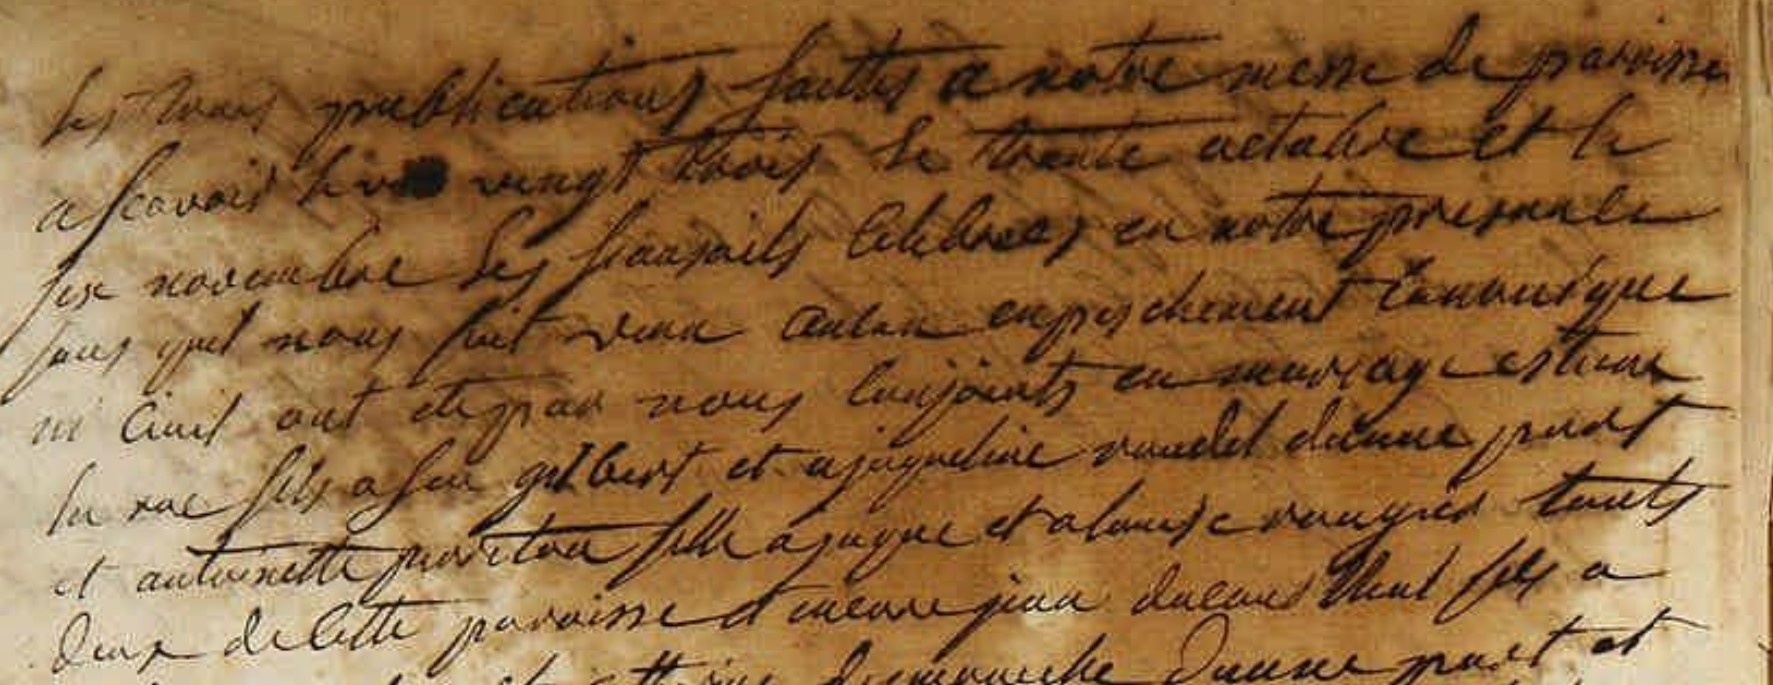 les trois publications faittes a notre messe de paroisse
a scavoir le vingt trois le trente octobre et le
six novembre les fiansails celebrees en notre presence
sans quil nous soit venu aucun empeschement canonique
ni civil ont ete par nous conjoints en mariage estienne
fils a feu gilbert et a jaqueline daune part
et antoinette fille a jaque et a louise touts
deux de cette paroisse et encore jean fils a
daune part et